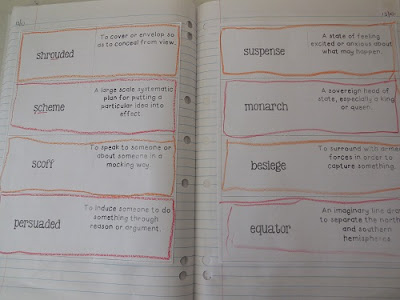 shrouded
To cover or envelop so
as to conceal from view.
scheme
A large scale systematic
plan for putting a
particular idea into
effect.
scoff
To speak to someone or
about someone in a
mocking way.
persuaded
To induce someone to do
something through
reason or argument.
suspense
A state of feeling
excited or anxious about
what may happen.
monarch
A sovereign head of
state, especially a king
or queen.
besiege
To surround with armed
forces in order to
capture something.
equator
An imaginary line drawn
to separate the north
and southern
hemispheres.